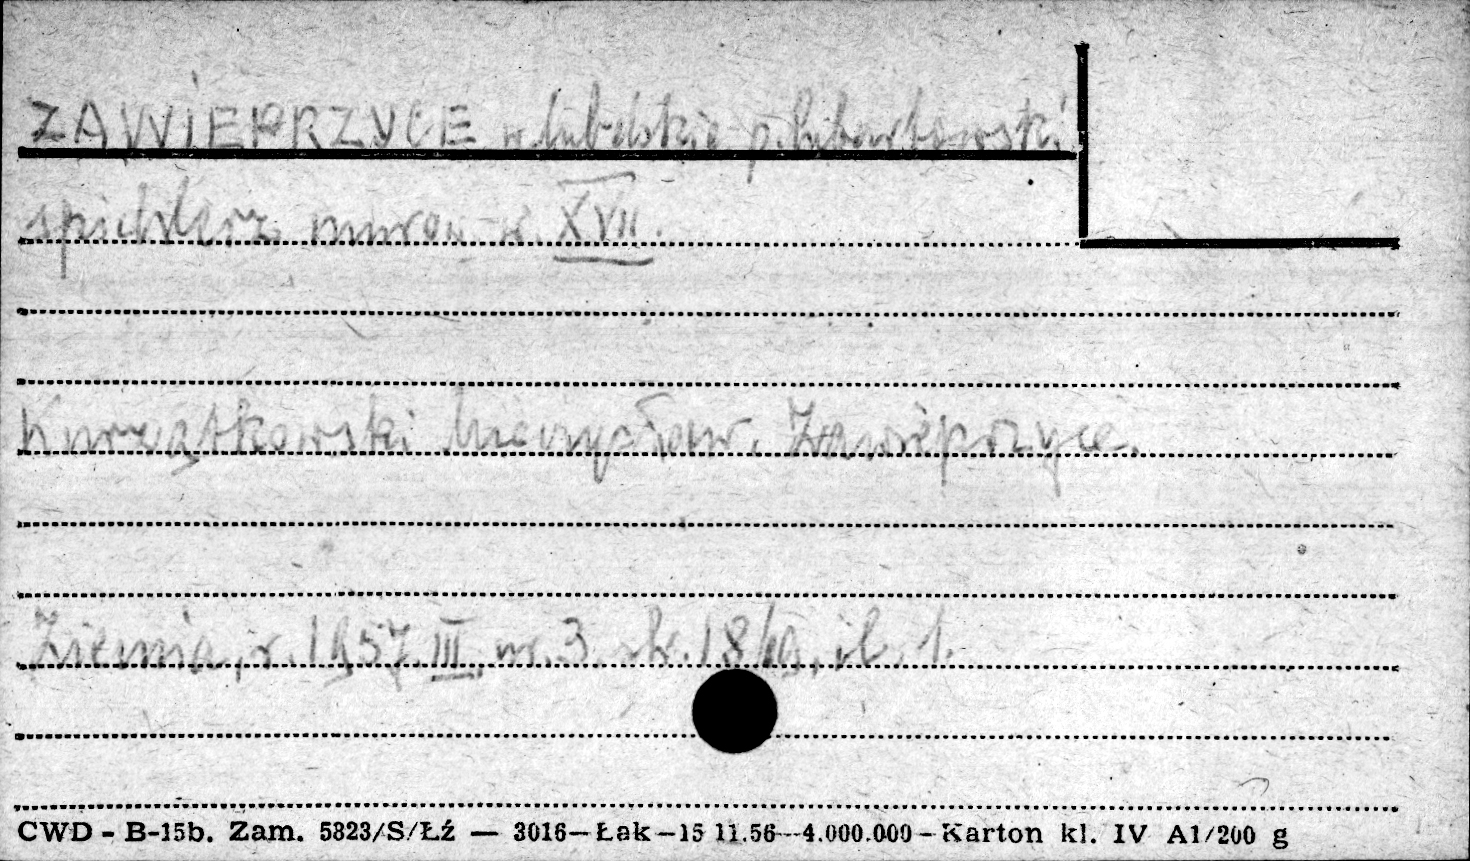 ZAWIEPRZYCE w. lubelskie p. lubartowski
spichlerz murow. w. XVII.
Kurzątkowski Mieczysław. Zawieprzyce.
Ziemia, r. 1957. III, nr. 3 str. 18/19, il. 1.
CWD - B-15b. Zam. 5823/S/Łź — 3016—Łak—15 11.56—4.000.000 - Karton kl. IV A1/200 g